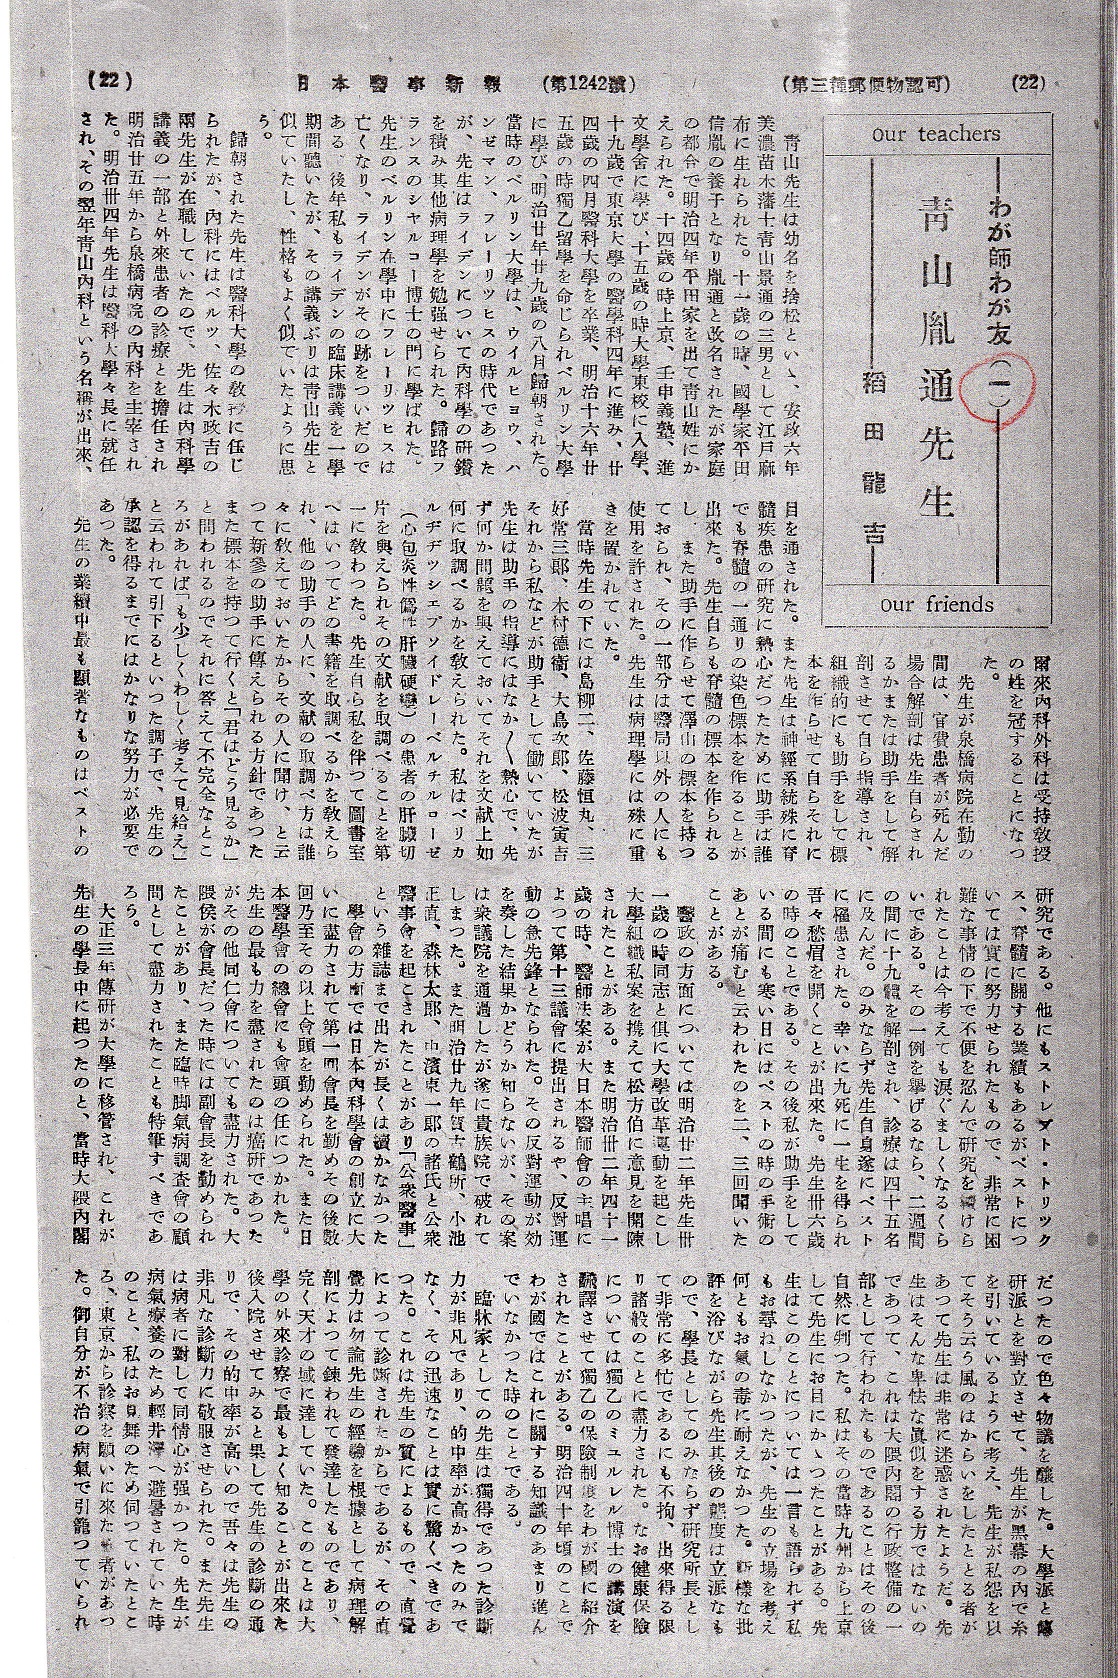 (22)
日本醫事新報
(第1242號)
(第三種郵便物認可)
(22)
our teachers
わが師わが友(一)
靑山胤通先生
稻田龍吉
our friends
靑山先生は幼名を捨松といゝ、安政六年
美濃苗木藩士靑山景通の三男として江戸麻
布に生れられた。十一歳の時、國學家平田
信胤の養子となり胤通と改名されたが家庭
の都合で明治四年平田家を出て靑山姓にか
えられた。十四歳の時上京、壬申義塾、進
文學舍に學び、十五歳の時大學東校に入學、
十九歳で東京大學の醫學科四年に進み、廿
四歳の四月醫科大學を卒業、明治十六年廿
五歳の時獨乙留學を命じられベルリン大學
に學び、明治廿年廿九歳の八月歸朝された。
當時のベルリン大學は、ウイルヒヨウ、ハ
ンゼマン、フレーリツヒスの時代であつた
が、先生はライデンについて內科學の硏鑽
を積み其他病理學を勉强せられた。歸路フ
ランスのシヤルコー博士の門に學ばれた。
先生のベルリン在學中にフレーリツヒスは
亡くなり、ライデンがその跡をついだので
ある、後年私もライデンの臨床講義を一學
期間聽いたが、その講義ぶりは靑山先生と
似ていたし、性格もよく似でいたように思
う。
歸朝された先生は醫科大學の敎授に任じ
られたが、內科にはベルツ、佐々木政吉の
兩先生が在職していたので、先生は內科學
講義の一部と外來患者の診療とを擔任され
明治廿五年から泉橋病院の內科を主宰され
た。明治卅四年先生は醫科大學々長に就任
され、その翌年靑山內科という名稱が出來、
爾來內科外科は受持敎授
の姓を冠することになつ
た。
先生が泉橋病院在勤の
間は、官費患者が死んだ
場合解剖は先生自らされ
るかまたは助手をして解
剖させて自ら指導され、
組織的にも助手をして標
本を作らせて自らそれに
目を通された。また先生は神經系統殊に脊
髓疾患の硏究に熱心だつたために助手は誰
でも脊髓の一通りの染色標本を作ることが
出來た。先生自らも脊髓の標本を作られる
し、また助手に作らせて澤山の標本を持つ
ておられ、その一部分は醫局以外の人にも
使用を許された。先生は病理學には殊に重
きを置かれていた。
當時先生の下には島柳二、佐藤恒丸、三
好常三郞、木村德衞、大島次郞、松波寅吉
それから私などが助手として働いていたが
先生は助手の指導にはなか〱熱心で、先
ず何か問題を與えておいてそれを文献上如
何に取調べるかを敎えられた。私はペリカ
ルヂヂツシエプソイドレーベルチルローゼ
(心包炎性僞性肝臓硬變)の患者の肝臓切
片を與えられその文献を取調べることを第
一に敎わつた。先生自ら私を伴つて圖書室
へはいつてどの書籍を取調べるかを敎えら
れ、他の助手の人に、文献の取調べ方は誰
々に敎えておいたからその人に聞け、と云
つて新參の助手に傳えられる方針であつた
また標本を持つて行くと「君はどう見るか」
と問われるのでそれに答えて不完全なとこ
ろがあれば「も少しくわしく考えて見給え」
と云われて引下るといつた調子で、先生の
承認を得るまでにはかなりな努力が必要で
あつた。
先生の業績中最も顯著なものはペストの
硏究である。他にもストレプト・トリツク
ス、脊髓に關する業績もあるがペストにつ
いては實に努力せられたもので、非常に困
難な事情の下で不便を忍んで硏究を續けら
れたことは今考えても淚ぐましくなるくら
いである。その一例を擧げるなら、二週間
の間に十九體を解剖され、診療は四十五名
に及んだ。のみならず先生自身遂にペスト
に罹患された。幸いに九死に一生を得られ
吾々愁眉を開くことが出來た。先生卅六歳
の時のことである。その後私が助手をして
いる間にも寒い日にはペストの時の手術の
あとが痛むと云われたのを二、三回聞いた
ことがある。
醫政の方面については明治廿二年先生卅
一歳の時同志と俱に大學改革運動を起こし
大學組織私案を携えて松方伯に意見を開陳
されたことがある。また明治卅二年四十一
歳の時、醫師法案が大日本醫師會の主唱に
よつて第十三議會に提出されるや、反對運
動の急先鋒となられた。その反對運動が効
を奏した結果かどうか知らないが、その案
は衆議院を通過したが遂に貴族院で破れて
しまつた。また明治廿九年賀古鶴所、小池
正直、森林太郞、中濱東一郞の諸氏と公衆
醫事會を起こされたことがあり「公衆醫事」
という雜誌まで出たが長くは續かなかつた
學會の方面では日本內科學會の創立に大
いに盡力されて第一回會長を勤めその後數
回乃至その以上會頭を勤められた。また日
本醫學會の總會にも會頭の任につかれた。
先生の最も力を盡されたのは癌硏であつた
がその他同仁會についても盡力された。大
隈侯が會長だつた時には副會長を勤められ
たことがあり、また臨時脚氣病調査會の顧
問として盡力されたことも特筆すべきであ
ろう。
大正三年傳硏が大學に移管され、これが
先生の學長中に起つたのと、當時大隈內閣
だつたので色々物議を釀した。大學派と傳
硏派とを對立させて、先生が黑幕の內で糸
を引いているように考え、先生が私怨を以
てそう云う風のはからいをしたととる者が
あつて先生は非常に迷惑されたようだ。先
生はそんな卑怯な眞似をする方ではないの
であつて、これは大隈內閣の行政整備の一
部として行われたものであることはその後
自然に判つた。私はその當時九州から上京
して先生にお目にかゝつたことがある。先
生はこのことについては一言も語られず私
もお尋ねしなかつたが、先生の立場を考え
何ともお氣の毒に耐えなかつた。斯樣な批
評を浴びながら先生其後の態度は立派なも
ので、學長としてのみならず硏究所長とし
て非常に多忙であるにも不拘、出來得る限
り諸般のことに盡力された。なお健康保險
については獨乙のミュルレル博士の講演を
飜譯させて獨乙の保險制度をわが國に紹介
されたことがある。明治四十年頃のことで
わが國ではこれに關する知識のあまり進ん
でいなかつた時のことである。
臨牀家としての先生は獨得であつた診斷
力が非凡であり、的中率が高かつたのみで
なく、その迅速なことは實に驚くべきであ
つた。これは先生の質によるもので、直覺
によつて診斷されたからであるが、その直
覺力は勿論先生の經驗を根據として病理解
剖によつて鍊われて發達したものであり、
完く天才の域に達していた。このことは大
學の外來診察で最もよく知ることが出來た
後入院させてみると果して先生の診斷の通
りで、その的中率が高いので吾々は先生の
非凡な診斷力に敬服させられた。また先生
は病者に對して同情心が强かつた。先生が
病氣療養のため輕井澤へ避暑されていた時
のこと、私はお見舞のため伺つていたとこ
ろ、東京から診察を願いに來た者があつ
た。御自分が不治の病氣で引籠つていられ